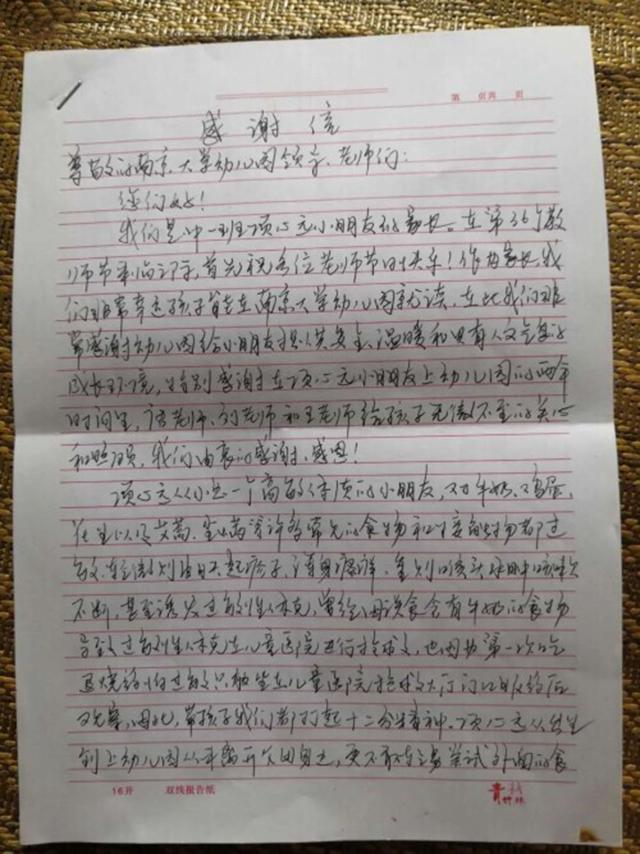 第 页共 页
感谢信
尊敬的南京大学幼儿园领导、老师们:
您们好!
我们是中一班顾心远小朋友的家长。在第36个教
师节来临之际,首先祝各位老师节日快乐!作为家长,我
们非常幸运孩子能在南京大学幼儿园就读,在此我们非
常感谢幼儿园给小朋友提供安全、温暖和具有人文气息的
成长环境,特别感谢在顾心远小朋友上幼儿园的两年
时间里,老师、刘老师和王老师给孩子无微不至的关心
和照顾,我们由衷的感谢、感恩!
顾心远从小是一个高敏体质的小朋友,对牛奶、鸡蛋、
花生以及艾蒿、尘螨等许多常见的食物和接触物都过
敏,轻微则出疹子、浑身瘙痒,重则喉头水肿咳嗽
不断,甚至诱发过敏性休克,曾经误食含有牛奶的食物
导致过敏性休克在儿童医院进行抢救,也因为第一次吃
过敏只能坐在儿童医院抢救大厅门口服药后
观察,因此,带孩子我们都打起十二分精神。顾心远从出生
到上幼儿园从未离开父母身边,更不敢在主动尝试外面的食
16开 双线报告纸
青